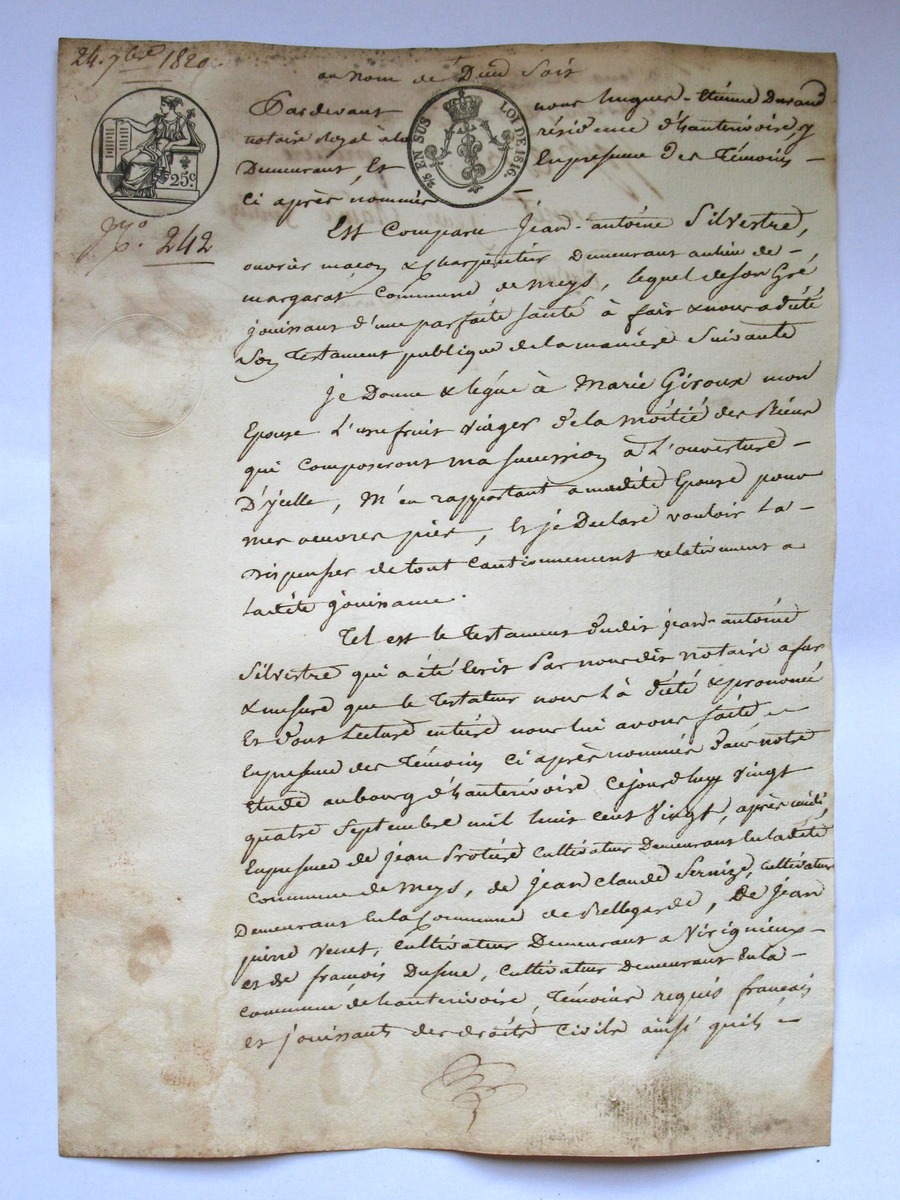 24. 7bre 1820
au nom de Dieu soit
Pardevant nous hugues-étienne Durand
notaire Royal à la résidence d'hauterivoire, y
Demeurant, Et En presence Des Témoins –
Ci après nommés –
25 c.
2/5 EN SUS LOI DE 1816.
242
Est Comparu Jean-antoine Silvestre,
ouvrier maçon & charpentier Demeurant au lieu de –
margarat Commune de meys, lequel de son Gré
jouissant d'une parfaite santé à fait & nous a dicté
Son Testament publique de la manière Suivante
Je Donne & legue à Marie Giroux mon
Epouse L'usufruit viager de la moitié des Biens
qui composeront ma succession à L'ouverture –
D'ycelle, M'en rapportant a madite Epouse pour
mes oeuvres pies, Et je Declare vouloir La –
Dispenser de tout Cautionnement relativement a
Ladite jouissance.
Tel est le Testament dudit jean-antoine
Silvestre qui a été Ecrit Par nous dit notaire a fur
& mesure que le Testateur nous L'à dicté & prononcé
Et dont Lecture entière nous lui avons faite, –
En presence des Témoins Ci après nommés dans notre
Etude au bourg d'hauterivoire Cejourdhuy Vingt
quatre Septembre mil huit cent Vingt, après midi,
En presence de jean Protière Cultivateur Demeurant En ladite
Commune de Meys, de Jean Claude Sernize, cultivateur
Demeurant En la Commune de Bellegarde, De Jean
pierre Venet, Cultivateur Demeurant a Virigneux –
et de françois Dussue, Cultivateur demeurant En la –
Commune de hauterivoire, Témoins requis français
et jouissants des droits Civils ainsi qu'ils –